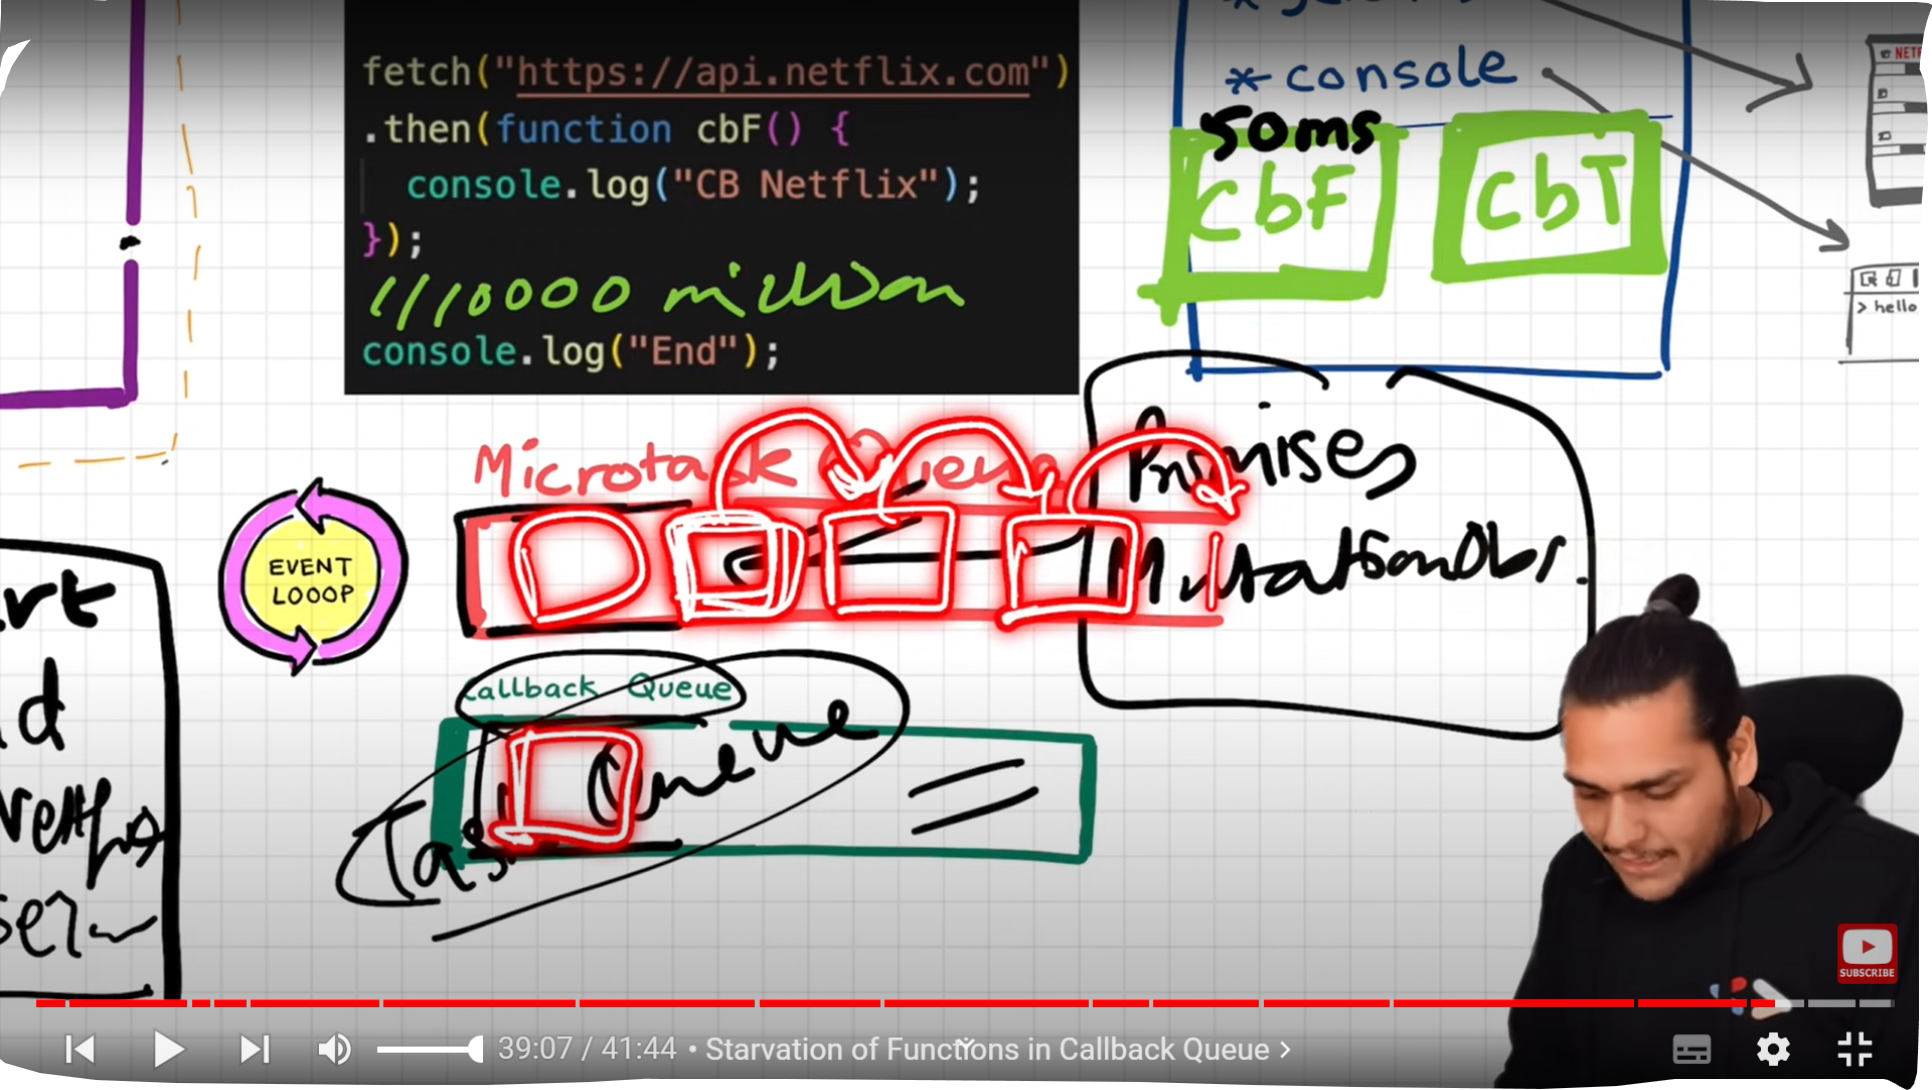 * console
fetch("https://api.netflix.com")
.then(function cbF() {
console.log("CB Netflix");
});
10000 million
console.log("End");
50ms
cbF
cbT
NET
> hello
Microtask Queue
Promises
EVENT
LOOOP
Callback Queue
Queue
SUBSCRIBE
39:07 / 41:44 • Starvation of Functions in Callback Queue >